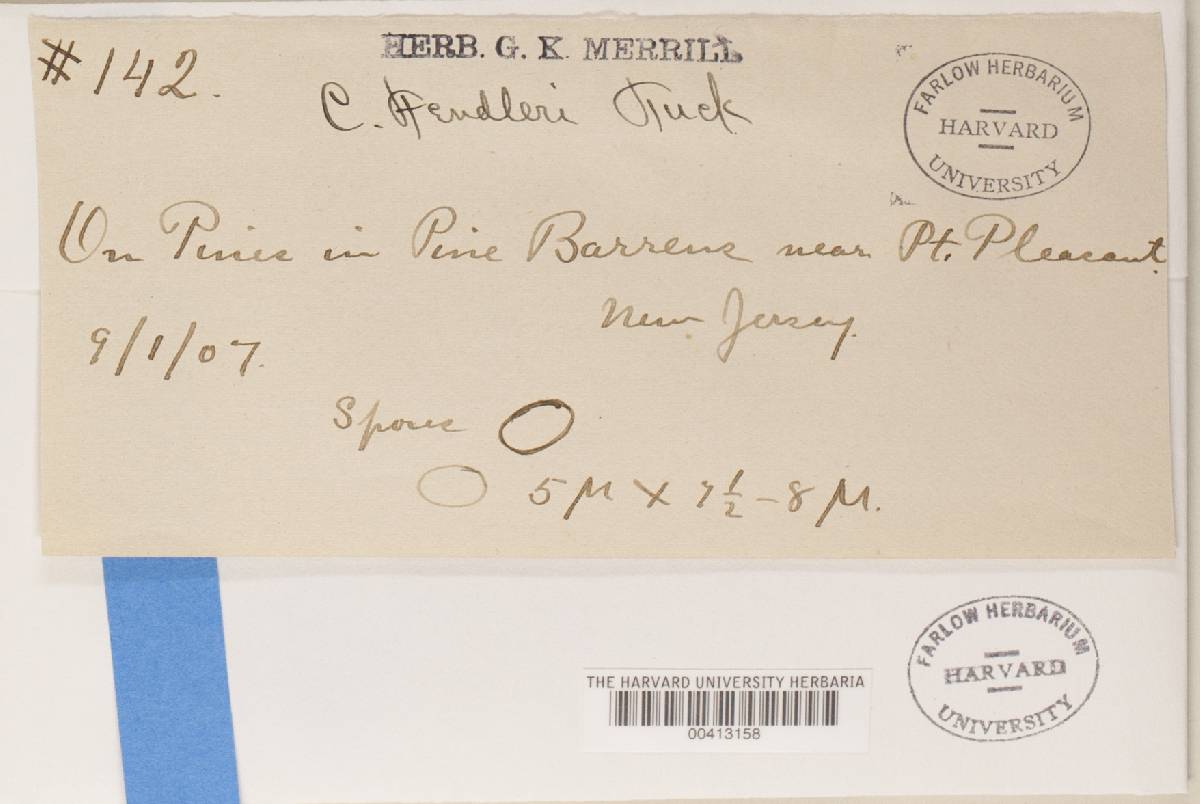 HERB. G. K. MERRILL
#142.
C. Fendleri Tuck
FARLOW HERBARIUM
HARVARD
UNIVERSITY
On Pines in Pine Barrens near Pt. Pleasant.
New Jersey.
9/1/07.
Spores
5 µ x 7 1/2 - 8 µ.
FARLOW HERBARIUM
HARVARD
UNIVERSITY
THE HARVARD UNIVERSITY HERBARIA
00413158